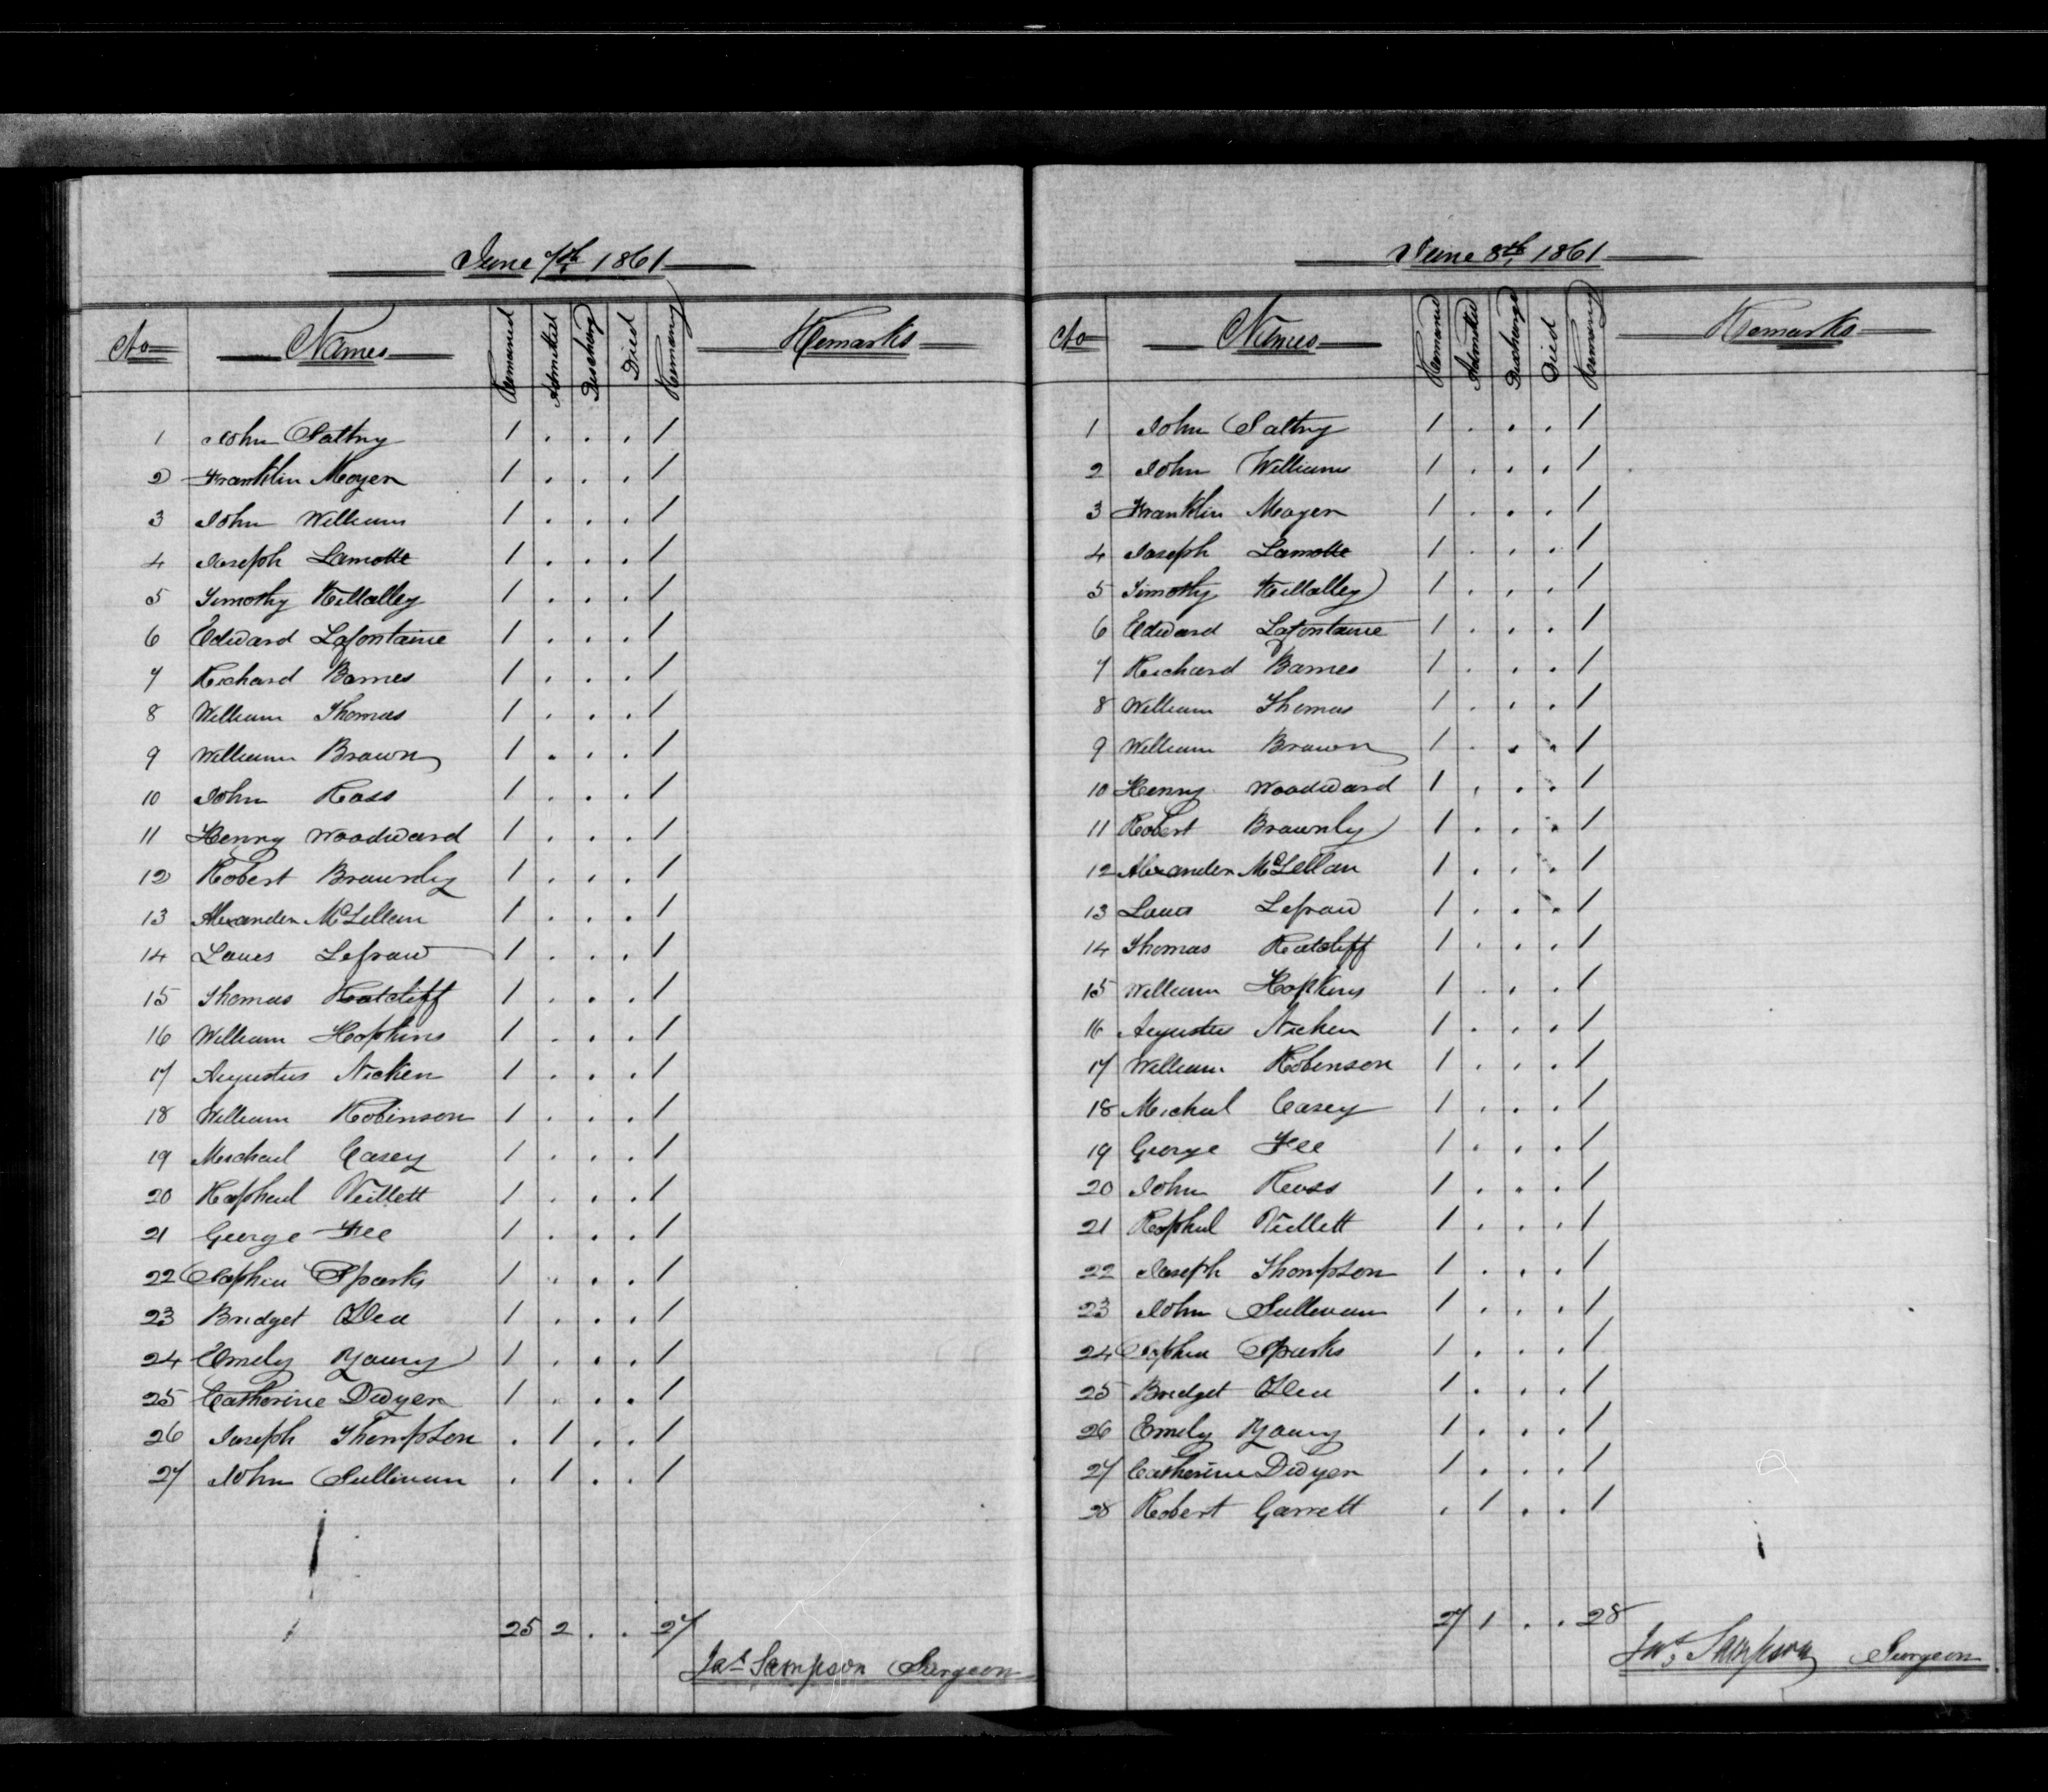 June 7th 1861
No Names Remained Admitted Discharg Died Remaining Remarks
1 John Saltry 1 . . . 1
2 Franklin Moyer 1 . . . 1
3 John William 1 . . . 1
4 Joseph Lamotte 1 . . . 1
5 Timothy Killalley 1 . . . 1
6 Edward Lafontaine 1 . . . 1
7 Richard Barnes 1 . . . 1
8 William Thomas 1 . . . 1
9 William Brown 1 . . . 1
10 John Ross 1 . . . 1
11 Henry Woodward 1 . . . 1
12 Robert Brownly 1 . . . 1
13 Alexander McLellan 1 . . . 1
14 Louis Lefraw 1 . . . 1
15 Thomas Ratcliff 1 . . . 1
16 William Hopkins 1 . . . 1
17 Augustus Nicken 1 . . . 1
18 William Robinson 1 . . . 1
19 Michael Casey 1 . . . 1
20 Raphael Veillett 1 . . . 1
21 George Fee 1 . . . 1
22 Sophia Sparks 1 . . . 1
23 Bridget ODea 1 . . . 1
24 Emely Young 1 . . . 1
25 Catherine Dwyer 1 . . . 1
26 Joseph Thompson . 1 . . 1
27 John Sullivan . 1 . . 1
25 2 . . 27
Jas Sampson Surgeon
June 8th 1861
No Names Remained Admitted Discharge Died Remaining Remarks
1 John Saltry 1 . . . 1
2 John Williams 1 . . . 1
3 Franklin Moyer 1 . . . 1
4 Joseph Lamotte 1 . . . 1
5 Timothy Killalley 1 . . . 1
6 Edward Lafontaine 1 . . . 1
7 Richard Barnes 1 . . . 1
8 William Thomas 1 . . . 1
9 William Brown 1 . . . 1
10 Henry Woodward 1 . . . 1
11 Robert Brownly 1 . . . 1
12 Alexander McLellan 1 . . . 1
13 Louis Lefraw 1 . . . 1
14 Thomas Ratcliff 1 . . . 1
15 William Hopkins 1 . . . 1
16 Augustus Nicken 1 . . . 1
17 William Robinson 1 . . . 1
18 Michael Casey 1 . . . 1
19 George Fee 1 . . . 1
20 John Ross 1 . . . 1
21 Raphael Veillett 1 . . . 1
22 Joseph Thompson 1 . . . 1
23 John Sullivan 1 . . . 1
24 Sophia Sparks 1 . . . 1
25 Bridget ODea 1 . . . 1
26 Emely Young 1 . . . 1
27 Catherine Dwyer 1 . . . 1
28 Robert Garrett . 1 . . 1
27 1 . . 28
Jas Sampson Surgeon